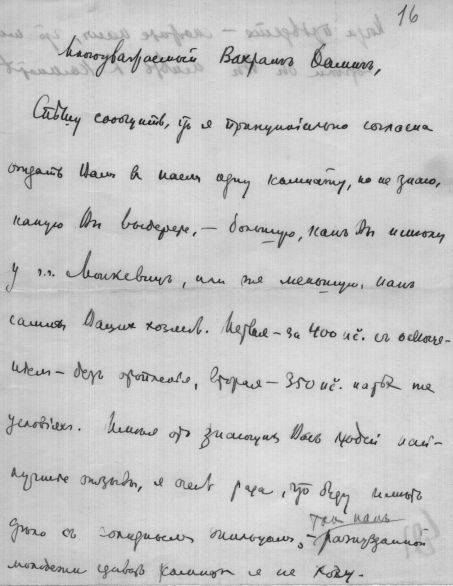 16
Многоуважаемый Вахранъ Даминъ,
Спѣшу сообщить, что я принципіально согласна
отдать Вамъ въ наемъ одну комнату, но не знаю,
какую Вы выберете, — большую, какъ Вы искали
у г.г. Монкевичъ, или же меньшую, какъ
самихъ Вашихъ хозяевъ. Первая — за 400 кč. съ освѣще-
ніемъ — безъ отопленія, вторая — 350 кč. на тѣхъ же
условіяхъ. Имѣя отъ знающихъ Васъ людей наи-
лучшіе отзывы, я очень рада, что буду имѣть
дѣло съ солиднымъ жильцомъ,
такъ какъ
— разнузданной
молодежи сдавать комнаты я не хочу.